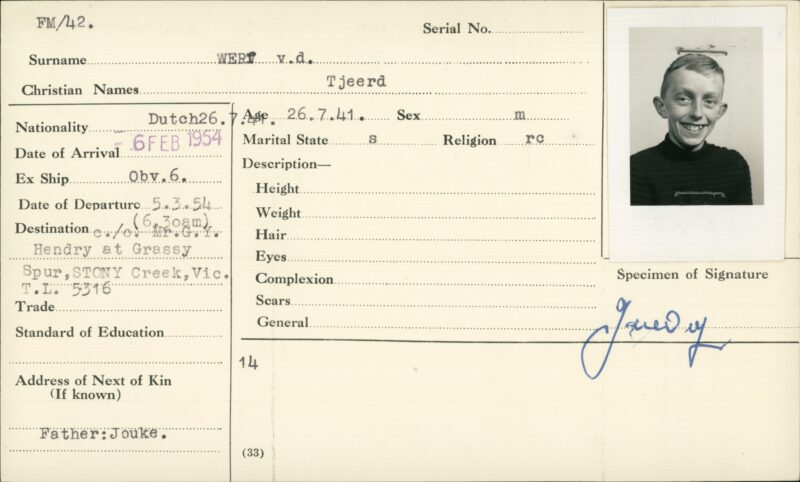 FM/42.
Serial No.
Surname WERF v.d.
Christian Names Tjeerd
Nationality Dutch26.7.41.
Date of Arrival - 6 FEB 1954
Ex Ship Obv.6.
Date of Departure 5.3.54
(6.30am)
Destination c./o. Mr.G.Y.
Hendry at Grassy
Spur,STONY Creek,Vic.
T.L. 5316
Trade
Standard of Education
Address of Next of Kin
(If known)
Father:Jouke.
Age 26.7.41. Sex m
Marital State s Religion rc
Description—
Height
Weight
Hair
Eyes
Complexion
Scars
General
14
(33)
Specimen of Signature